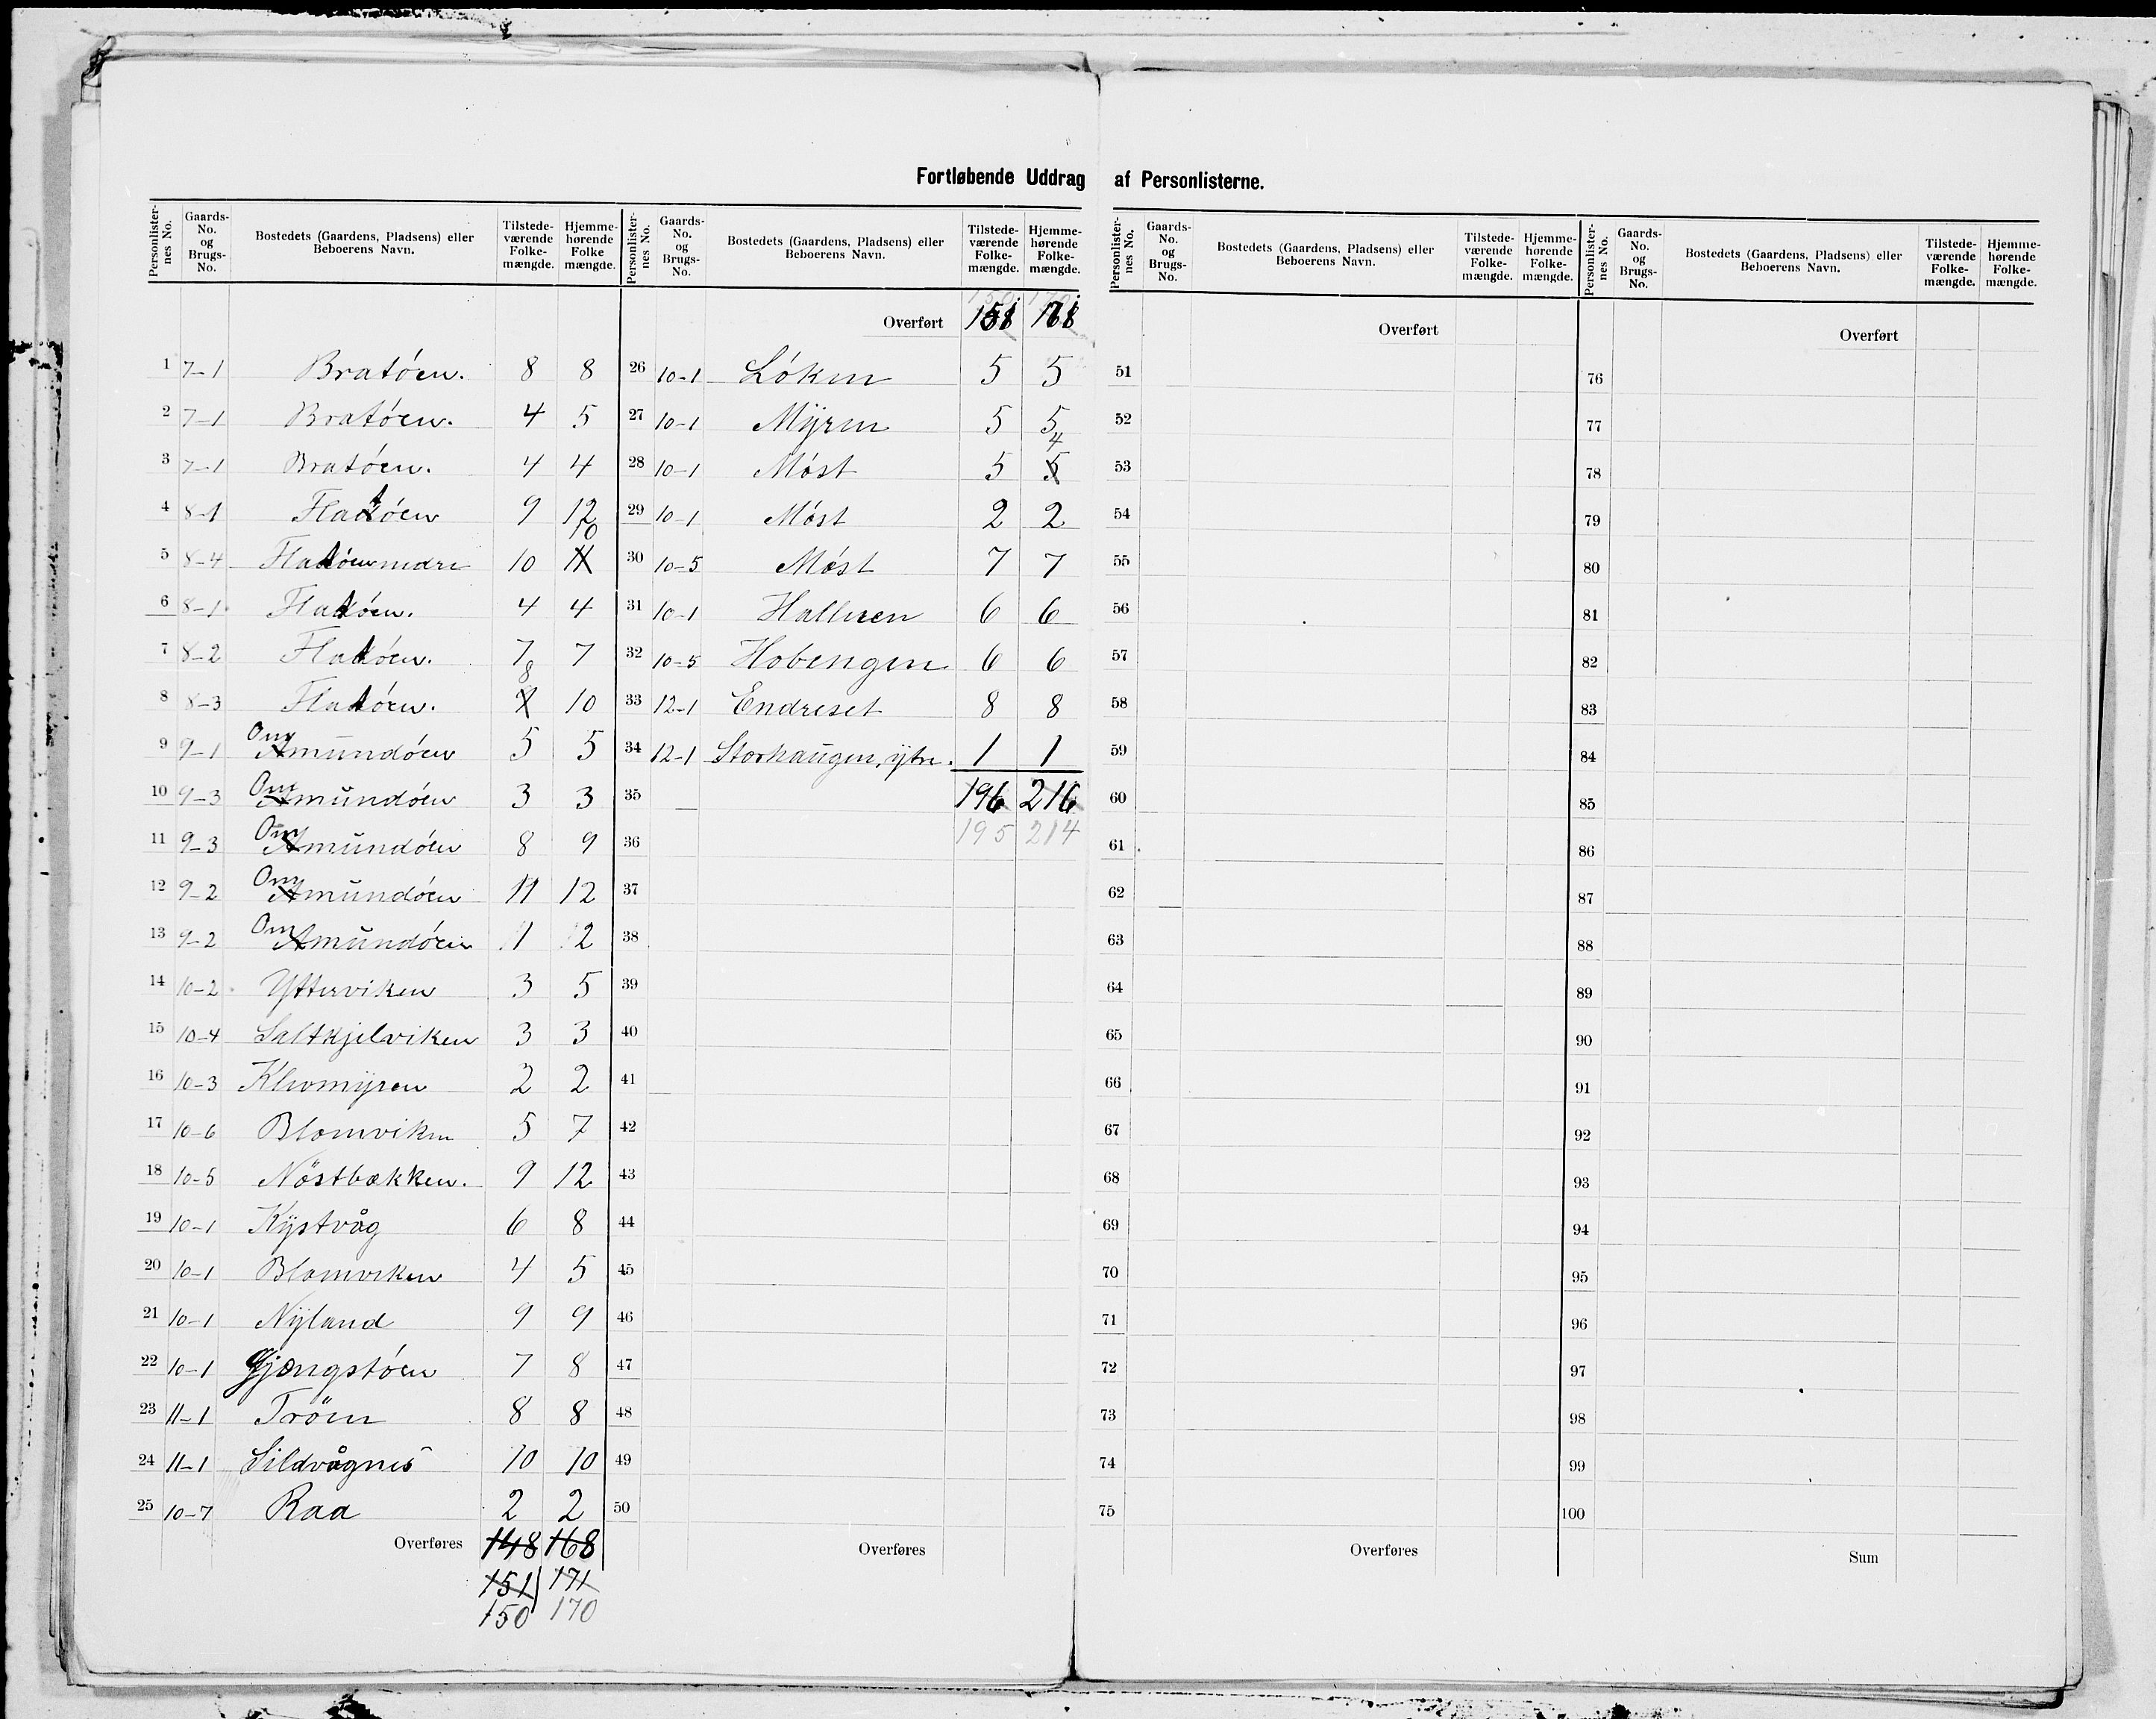 Fortløbende Uddrag af Personlisterne.
Personlisternes No. | Gaards-No. og Brugs-No. | Bostedets (Gaardens, Pladsens) eller Beboerens Navn. | Tilstede-værende Folke-mængde. | Hjemme-hørende Folke mængde.
1 7-1 Bratóen. 8 8
2 7-1 Bratóen. 4 5
3 7-1 Bratóen. 4 4
4 8-1 Flatóen 9 12
5 8-4 Flatóen nedre 10 11 10
6 8-1 Flatóen. 4 4
7 8-2 Flatóen. 7 7
8 8-3 Flatóen. 8 10
9 9-1 Om Amundóen 5 5
10 9-3 Om Amundóen 3 3
11 9-3 Om Amundóen 8 9
12 9-2 Om Amundóen 11 12
13 9-2 Om Amundóen 1 2
14 10-2 Ytterviken 3 5
15 10-4 Saltkjelviken 3 3
16 10-3 Klevmyren 2 2
17 10-6 Blomviken 5 7
18 10-5 Nöstbækken. 9 12
19 10-1 Kystvåg 6 8
20 10-1 Blomviken 4 5
21 10-1 Nyland 9 9
22 10-1 Gjengstóen 7 8
23 11-1 Tröen 8 8
24 11-1 Sildvågnes 10 10
25 10-7 Raa 2 2
Overføres 148 168
151 171
150 170
Personlisternes No. | Gaards-No. og Brugs-No. | Bostedets (Gaardens, Pladsens) eller Beboerens Navn. | Tilstede-værende Folke-mængde. | Hjemme-hørende Folke-mængde.
150 170
Overført 151 171
26 10-1 Lóken 5 5
27 10-1 Myren 5 5
28 10-1 Móst 5 5 4
29 10-1 Móst 2 2
30 10-5 Móst 7 7
31 10-1 Hallven 6 6
32 10-5 Hobengen 6 6
33 12-1 Endreset 8 8
34 12-1 Storhaugen, ytre. 1 1
35 196 216
36 195 214
37
38
39
40
41
42
43
44
45
46
47
48
49
50
Overføres
Personlisternes No. | Gaards-No. og Brugs-No. | Bostedets (Gaardens, Pladsens) eller Beboerens Navn. | Tilstede-værende Folke-mængde. | Hjemme-hørende Folke-mængde.
Overført
51
52
53
54
55
56
57
58
59
60
61
62
63
64
65
66
67
68
69
70
71
72
73
74
75
Overføres
Personlisternes No. | Gaards-No. og Brugs-No. | Bostedets (Gaardens, Pladsens) eller Beboerens Navn. | Tilstede-værende Folke-mængde. | Hjemme-hørende Folke-mængde.
Overført
76
77
78
79
80
81
82
83
84
85
86
87
88
89
90
91
92
93
94
95
96
97
98
99
100
Sum